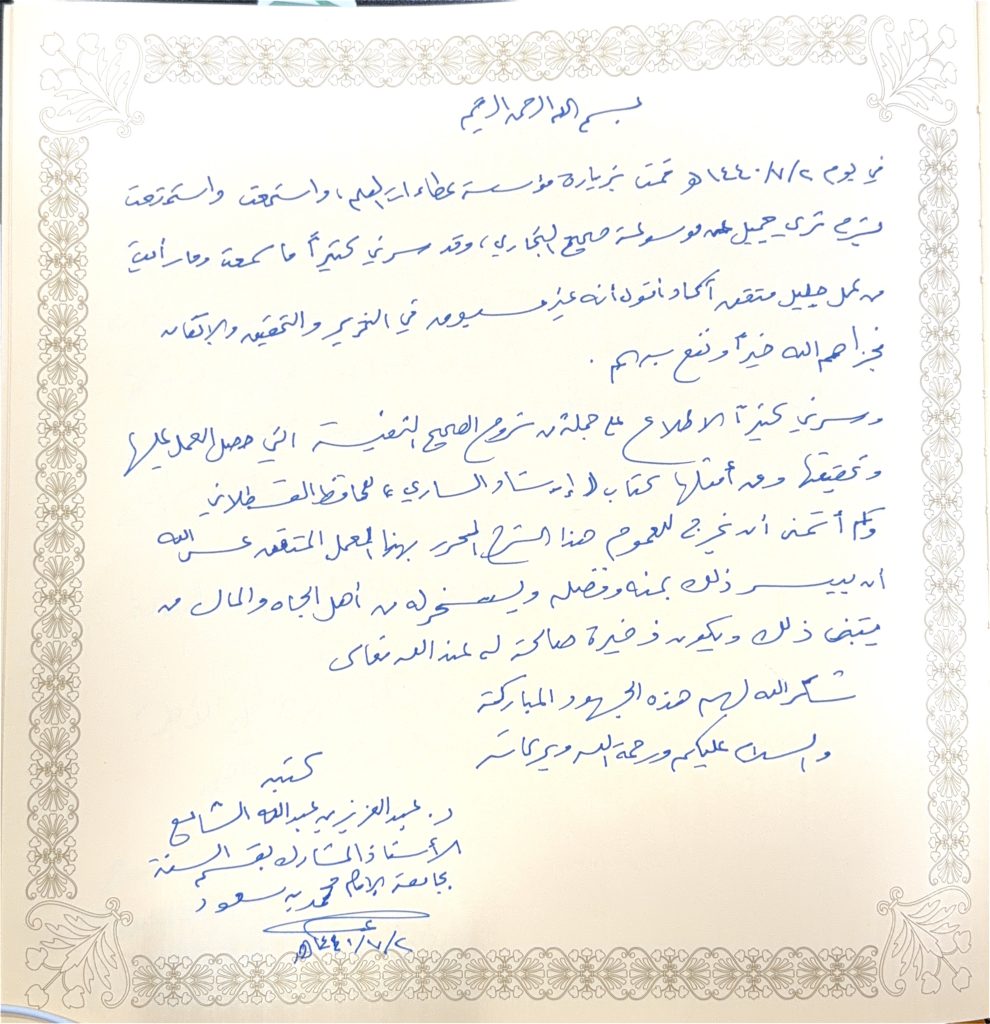 بسم الله الرحمن الرحيم
في يوم ١٤٤٠/٧/٢هـ قمت بزيارة مؤسسة عطاءات العلم، واستمعت واستمتعت
بشرح ثري جميل عن موسوعة صحيح البخاري، وقد سرني كثيراً ما سمعت وما رأيت
من عمل جليل متقن أكاد أقول أنه غير مسبوق في التحرير والتحقيق والإتقان
فجزاهم الله خيراً ونفع بهم .
وسرني كثيراً الاطلاع على جملة من شروح الصحيح النفيسة التي حصل العمل عليها
وتحقيقها ومن أمثلها كتاب (إرشاد الساري) للحافظ القسطلاني
وكم أتمنى أن يخرج للعموم هذا الشرح المحرر بهذا العمل المتقن عسى الله
أن ييسر ذلك بمنه وفضله ويسخر له من أهل الجاه والمال من
يتبنى ذلك ويكون ذخيرة صالحة له عند الله تعالى
شكر الله لهم هذه الجهود المباركة
والسلام عليكم ورحمة الله وبركاته
كتبه
د. عبدالعزيز بن عبدالله الشايع
الأستاذ المشارك بقسم السنة
بجامعة الإمام محمد بن سعود
١٤٤٠/٧/٢هـ